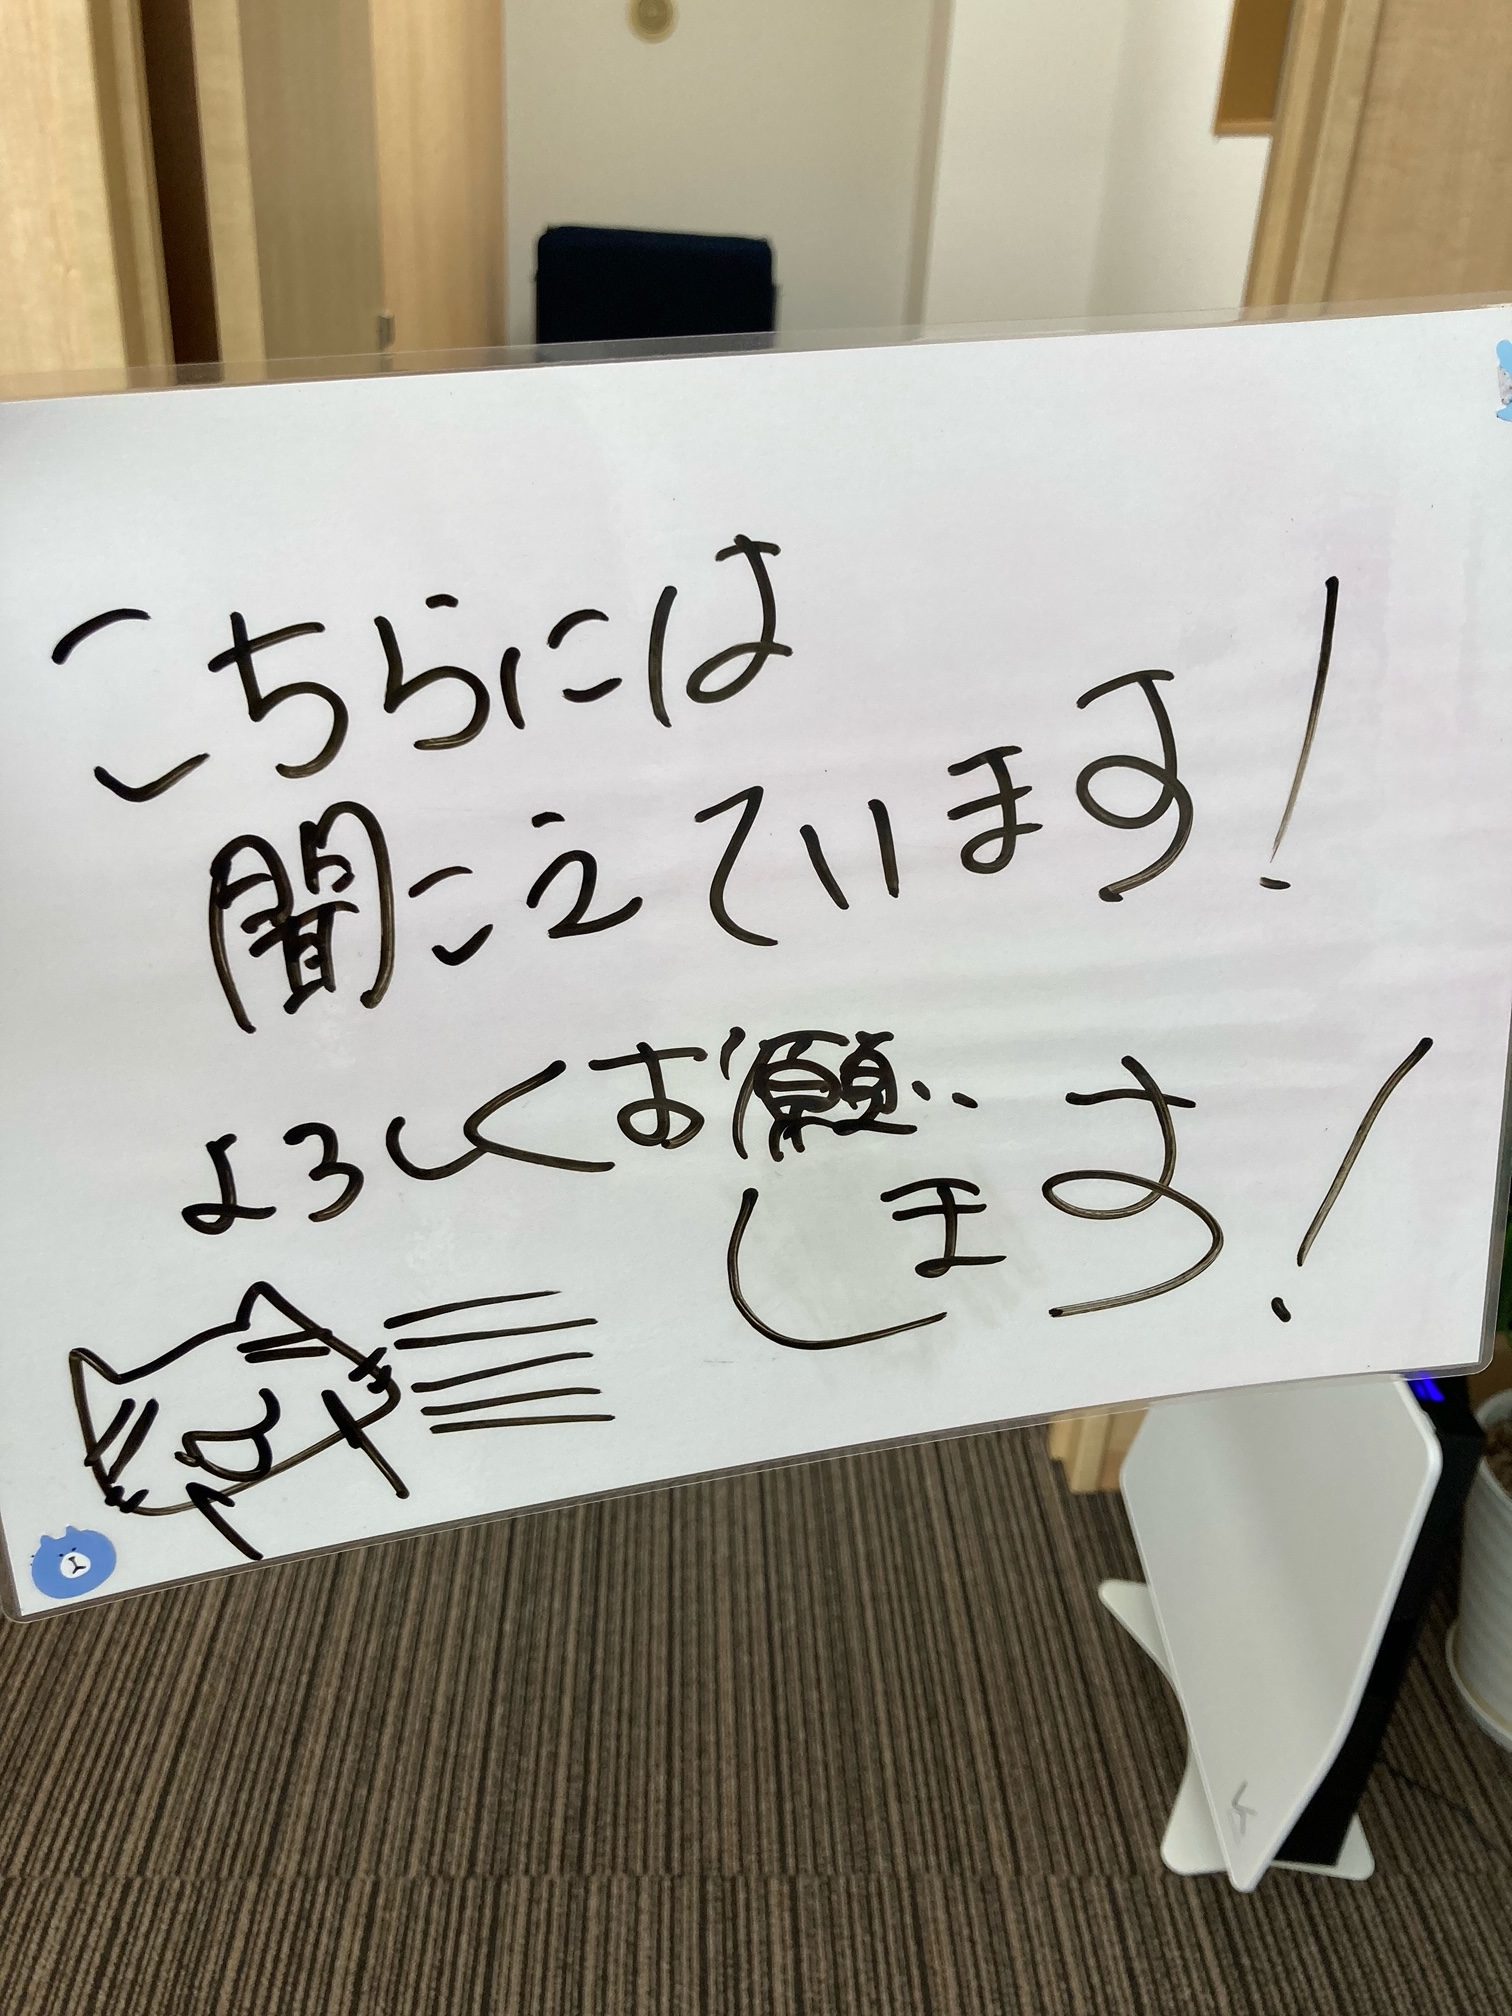 こちらには
聞こえています!
よろしくお願い
します!